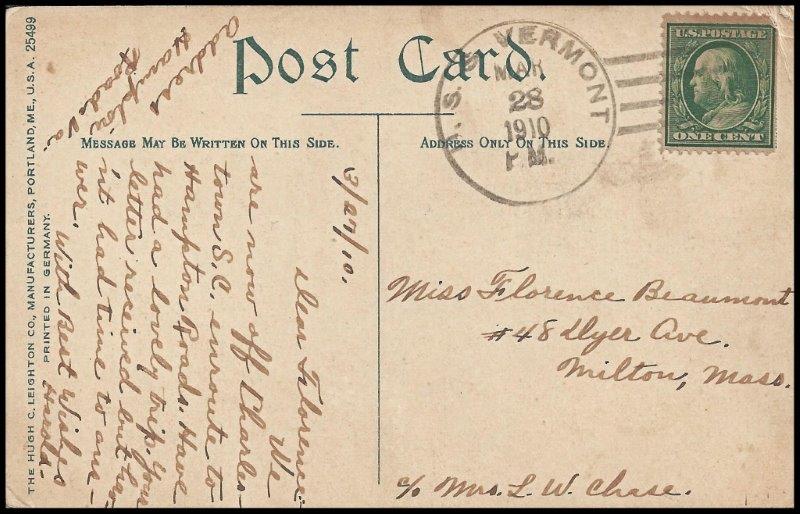 Post Card.
MESSAGE MAY BE WRITTEN ON THIS SIDE.
ADDRESS ONLY ON THIS SIDE.
THE HUGH C. LEIGHTON CO., MANUFACTURERS, PORTLAND, ME., U.S.A. 25499
PRINTED IN GERMANY.
U.S.S. VERMONT
MAR
28
1910
P.M.
U.S. POSTAGE
ONE CENT
3/27/10.
Dear Florence:
We
are now off Charles-
town S.C. enroute to
Hampton Roads. Have
had a lovely trip. Your
letter received but hav
int had time to ans-
wer. With Best Wishes
Harold.
Address
Hampton
Roads Va.
Miss Florence Beaumont
#48 Dyer Ave.
Milton, Mass.
c/o Mrs. L. W. Chase.